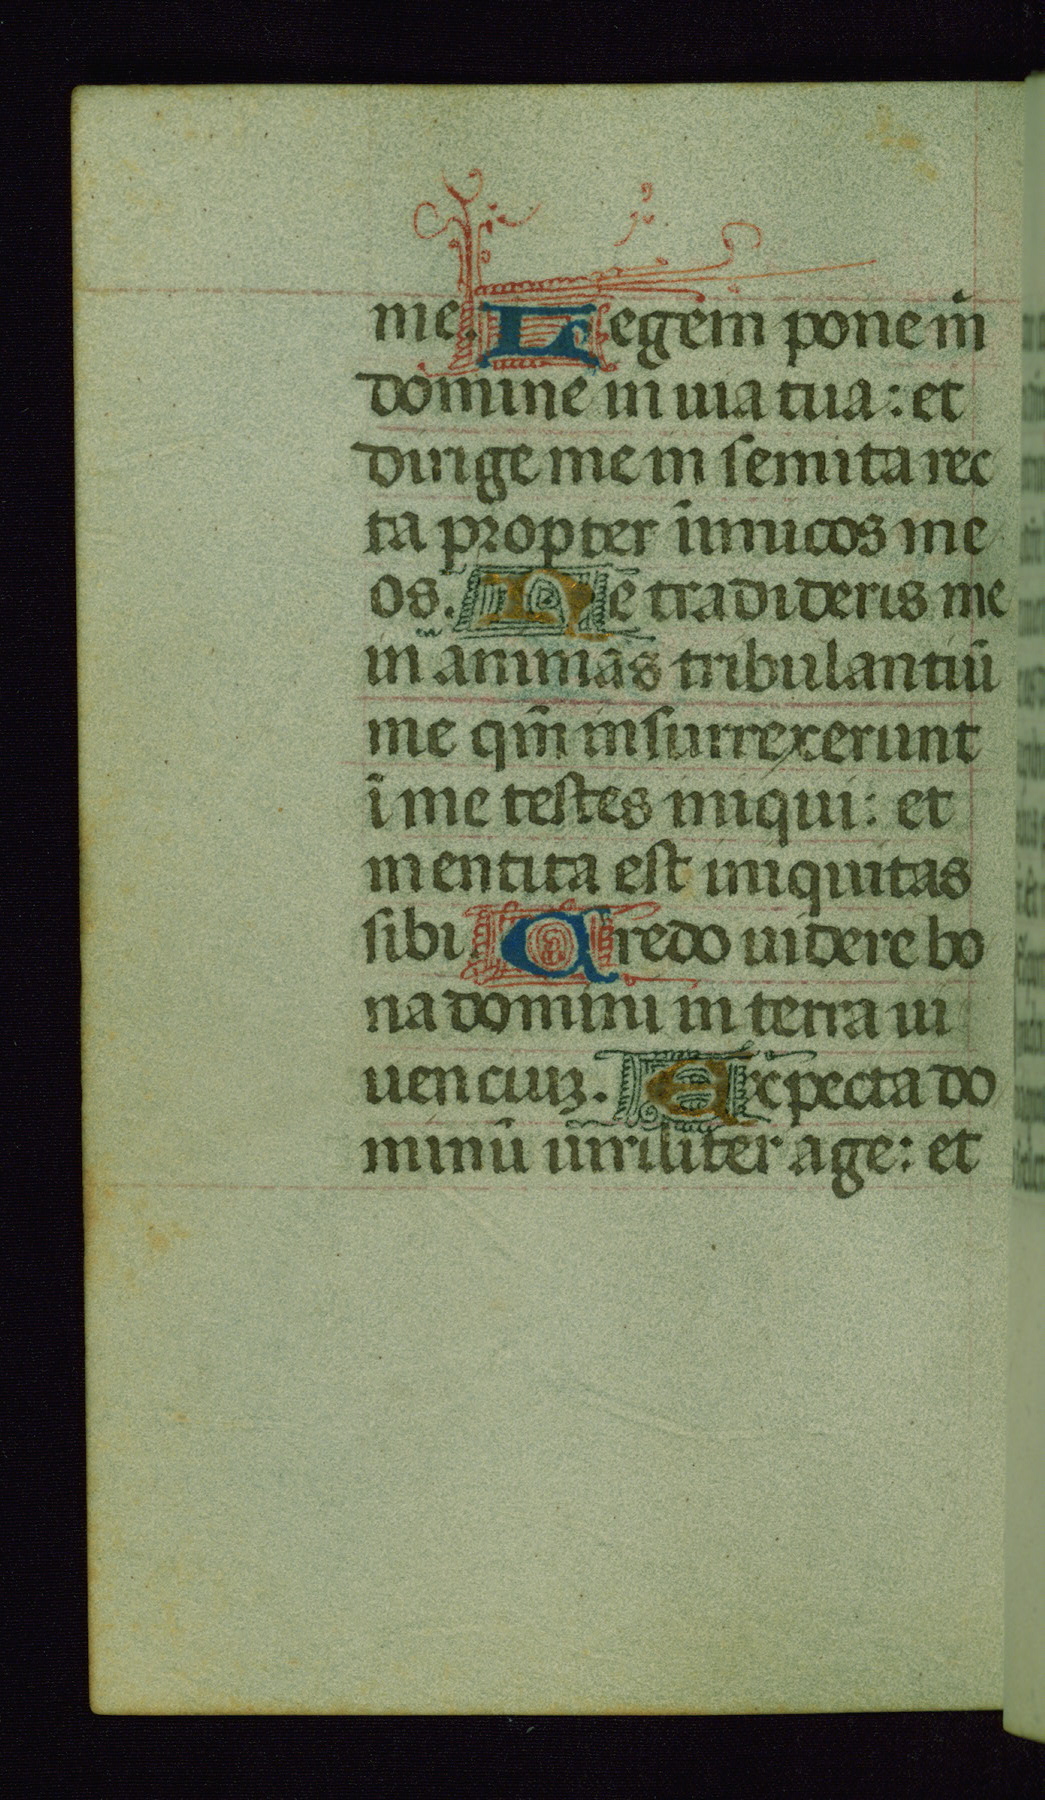 me. Legem pone m̄
domine in uia tua: et
dirige me in semita rec
ta propter īimicos me
os. Ne tradideris me
in animas tribulantiū
me qm̄ insurrexerunt
ī me testes iniqui: et
mentita est iniquitas
sibi. Credo uidere bo
na domini in terra ui
uenciuꝫ. Expecta do
minū uiriliter age: et